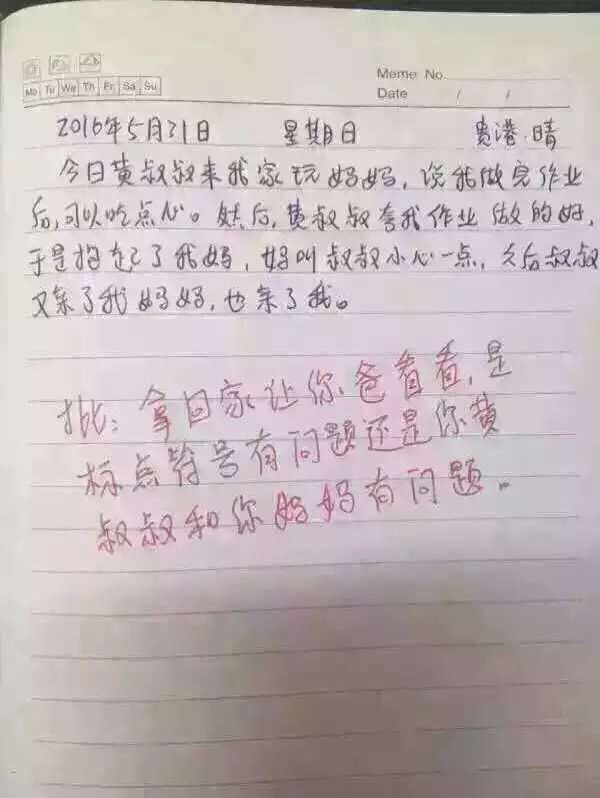 Meme No.
Mo Tu We Th Fr Sa Su
Date / /
2016年5月31日 星期日 贵港.晴
今日黄叔叔来我家玩妈妈,说我做完作业
后,可以吃点心。然后,黄叔叔夸我作业做的好,
于是抱起了我妈,妈叫叔叔小心一点,之后叔叔
又亲了我妈妈,也亲了我。
批:拿回家让你爸看看,是
标点符号有问题还是你黄
叔叔和你妈妈有问题。